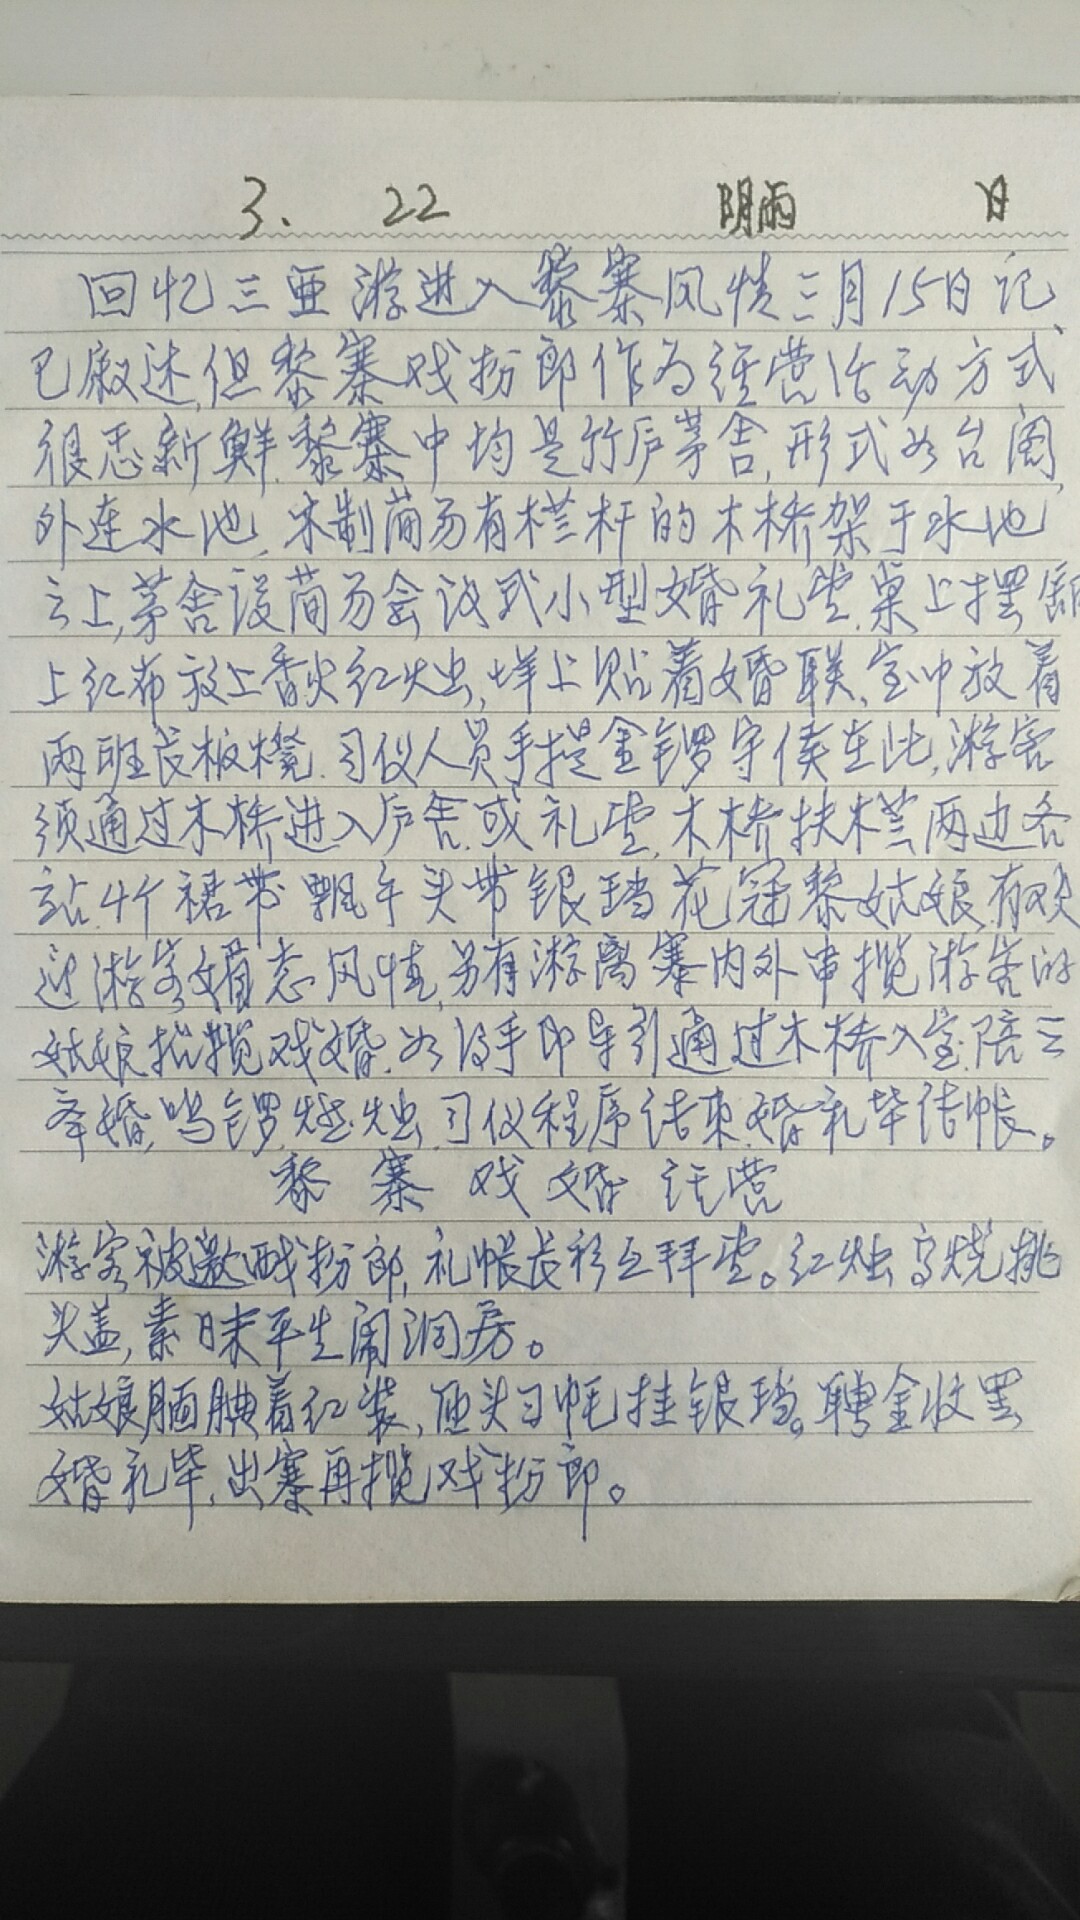 3. 22 阴雨 日
回忆三亚游进入黎寨风情三月15日记
已叙述,但黎寨戏扮郎作为经营活动方式
很感新鲜.黎寨中均是竹庐茅舍,形式如台阁,
外连水池,木制简易有栏杆的木桥架于水池
之上,茅舍设简易会议式小型婚礼堂.桌上摆铺
上红布放上香火红烛,墙上贴着婚联.室中放着
两班长板櫈.司仪人员手提金锣守候在此,游客
须通过木桥进入庐舍.或礼堂,木桥扶栏两边各
站4个裙带飘午头带银珰花冠黎姑娘.有欢
迎游客媚态风情,另有游离寨内外串揽游客的
姑娘招揽戏婚.如得手即导引通过木桥入室.陪三
牵婚.鸣锣.燃烛.司仪程序结束.婚礼毕结帐。
黎寨戏婚经营
游客被邀戏扮郎,礼帐长衫上拜堂。红烛高烧挑
头盖,素日未平生闹洞房。
姑娘腼腆着红装,头司帽挂银珰。聘金收罢
婚礼毕,出寨再揽戏扮郎。